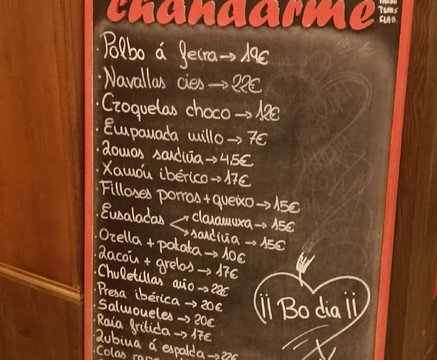 chandarme
Polbo á feira → 19€
Navallas cies → 22€
Croquetas choco → 12€
Empanada millo → 7€
Lomos sardiña → 45€
Xamón ibérico → 17€
Filloses porros + queixo → 15€
Ensaladas
claramuxa → 15€
sardiña → 15€
Orella + patata → 10€
Lacón + grelos → 17€
Chuletillas año → 22€
Presa ibérica → 20€
Salmonetes → 20€
Raia fritida → 17€
Lubina á espalda → 22€
Colas rape
¡¡ Bo dia !!